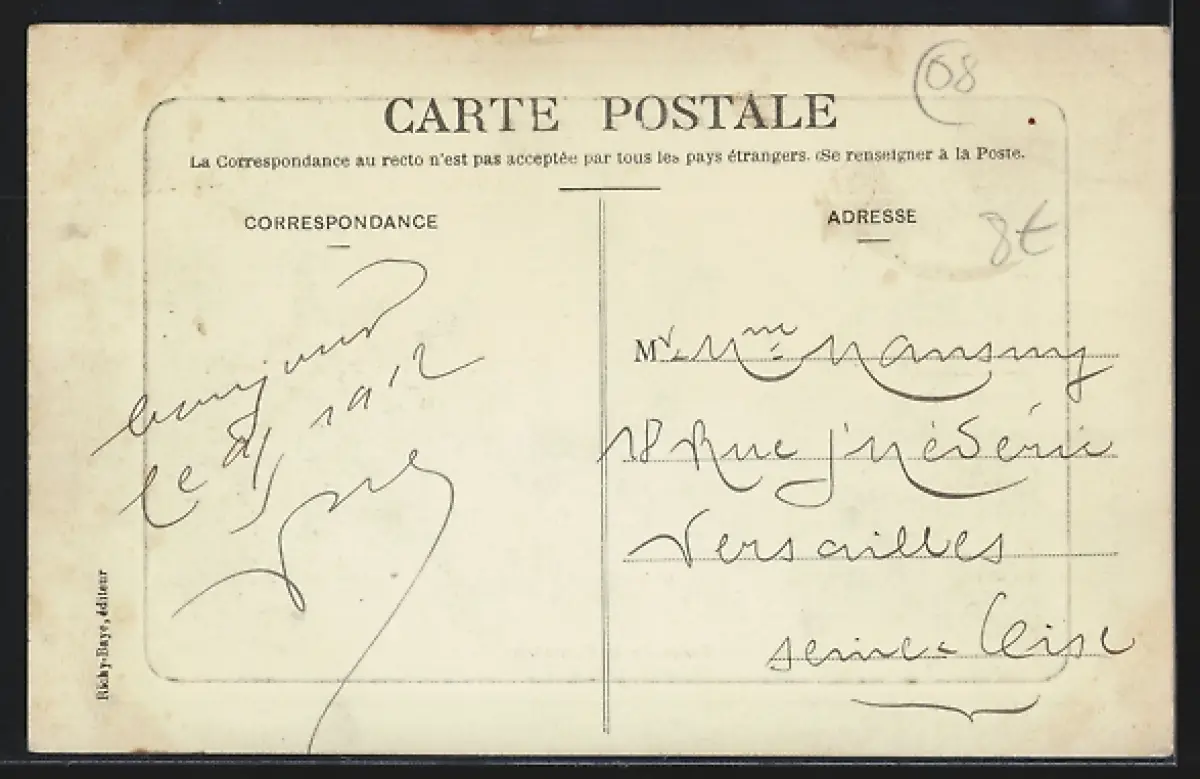 08
CARTE POSTALE
La Correspondance au recto n'est pas acceptée par tous les pays étrangers. (Se renseigner à la Poste.
CORRESPONDANCE
bonjour
le
1912
Richy-Baye, éditeur
ADRESSE
8€
Mr. Mme Mansuy
18 Rue
Versailles
seine-&-Oise